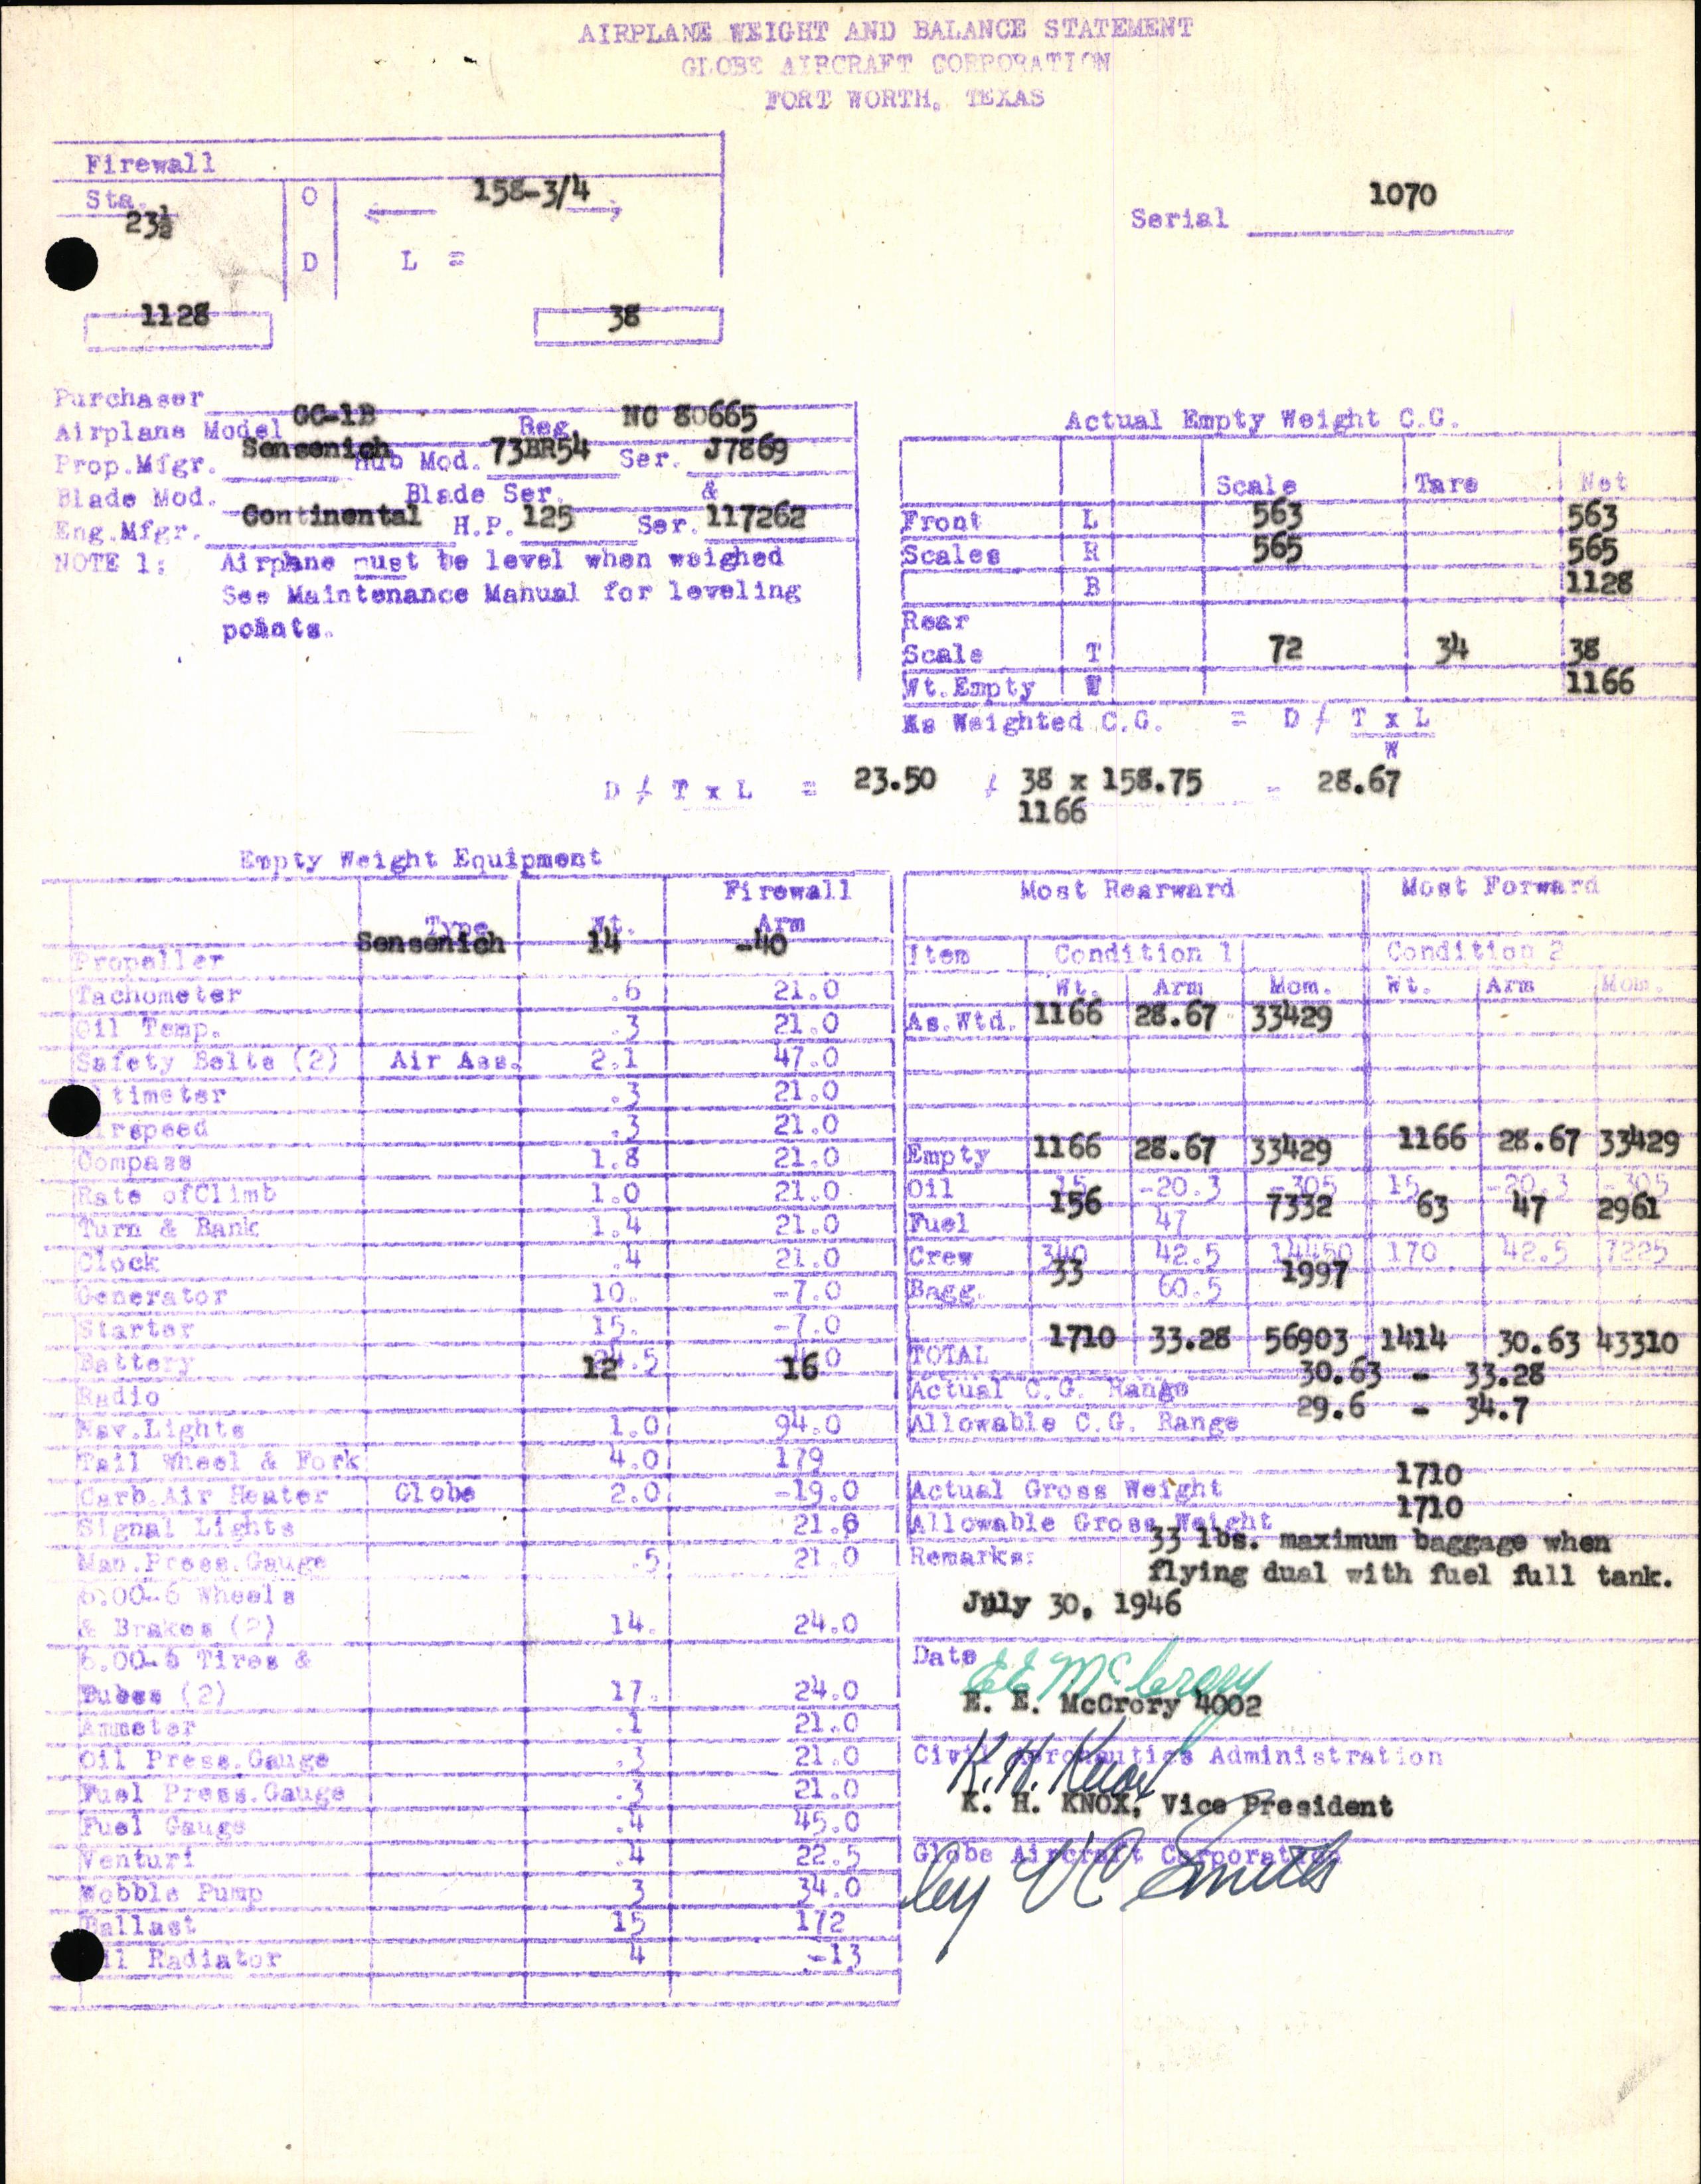 AIRPLANE WEIGHT AND BALANCE STATEMENT
GLOBE AIRCRAFT CORPORATION
FORT WORTH, TEXAS
Firewall
Sta. 23½ O 158-3/4
D L =
1128 38
Serial 1070
Purchaser
Airplane Model GC-1B Reg. NC 80665
Prop.Mfgr. Sensenich Hub Mod. 73BR54 Ser. J7869
Blade Mod. Blade Ser. &
Eng.Mfgr. Continental H.P. 125 Ser. 117262
NOTE 1: Airplane must be level when weighed
See Maintenance Manual for leveling
points.
Actual Empty Weight C.G.
Scale Tare Net
Front L 563 563
Scales R 565 565
B 1128
Rear
Scale T 72 34 38
Wt.Empty W 1166
As Weighted C.G. = D / T x L
W
D / T x L = 23.50 / 38 x 158.75 = 28.67
1166
Empty Weight Equipment
Type Wt. Firewall
Arm
Propeller Sensenich 14 -40
Tachometer .6 21.0
Oil Temp. .3 21.0
Safety Belts (2) Air Ass. 2.1 47.0
timeter .3 21.0
irspeed .3 21.0
Compass 1.8 21.0
Rate ofClimb 1.0 21.0
Turn & Bank 1.4 21.0
Clock .4 21.0
Generator 10. -7.0
Starter 15. -7.0
Battery 12 16
Radio
Nav.Lights 1.0 94.0
Tail Wheel & Fork 4.0 179
Carb.Air Heater Globe 2.0 -19.0
Signal Lights 21.6
Man.Press.Gauge .5 21.0
6.00-6 Wheels
& Brakes (2) 14. 24.0
6.00-6 Tires &
Tubes (2) 17. 24.0
Ammeter .1 21.0
Oil Press.Gauge .3 21.0
Fuel Press.Gauge .3 21.0
Fuel Gauge .4 45.0
Venturi .4 22.5
Wobble Pump 3 34.0
Ballast 15 172
il Radiator 4 -13
Most Rearward Most Forward
Item Condition 1 Condition 2
Wt. Arm Mom. Wt. Arm Mom.
As.Wtd. 1166 28.67 33429
Empty 1166 28.67 33429 1166 28.67 33429
Oil 15 -20.3 -305 15 -20.3 -305
Fuel 156 47 7332 63 47 2961
Crew 340 42.5 14450 170 42.5 7225
Bagg. 33 60.5 1997
TOTAL 1710 33.28 56903 1414 30.63 43310
Actual C.G. Range 30.63 - 33.28
Allowable C.G. Range 29.6 - 34.7
Actual Gross Weight 1710
Allowable Gross Weight 1710
Remarks: 33 lbs. maximum baggage when
flying dual with fuel full tank.
July 30, 1946
Date
E E McCrory
E. E. McCrory 4002
Civil Aeronautics Administration
K. H. Knox
K. H. KNOX, Vice President
Globe Aircraft Corporation
by V C Smith